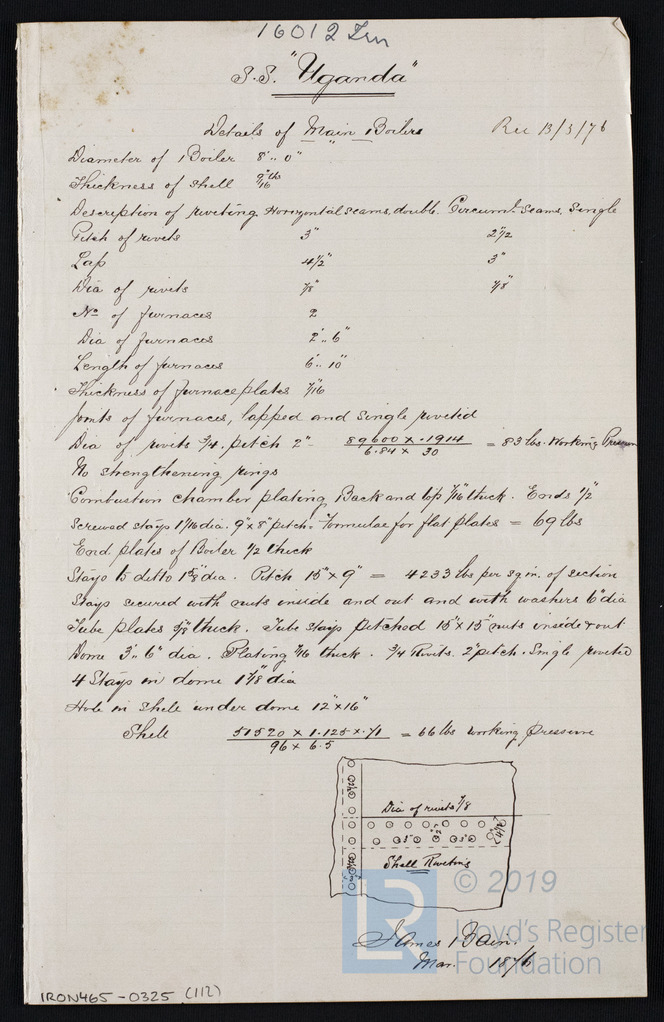 16012 Irn
S.S. "Uganda"
Details of Main Boilers Rec 13/3/76
Diameter of Boiler 8'.. 0"
Thickness of shell 9/16
Description of riveting Horizontal seams, double. Circuml. Seams, Single
Pitch of rivets 3" 2 1/2
Lap 4 1/2" 3"
Dia of rivets 7/8" 7/8"
No. of furnaces 2
Dia of furnaces 2'.. 6"
Length of furnaces 6'.. 10"
Thickness of furnace plates 7/16
Joints of furnaces, lapped and single riveted
Dia of rivets 3/4. pitch 2" 89600 x .1914 / 6.84 x 30 = 83 lbs. Working Pressure
No strengthening rings
Combustion chamber plating Back and top 7/16 thick. Ends 1/2"
Screwed stays 1 1/16 dia. 9" x 8" pitch. Formulae for flat plates = 69 lbs
End plates of Boiler 1/2 thick
Stays to ditto 1 5/8" dia. Pitch 15" x 9" = 4233 lbs per sq in. of section
Stays secured with nuts inside and out and with washers 6" dia
Tube plates 5/8" thick. Tube stays pitched 15" x 15" nuts inside & out
Dome 3'.. 6" dia. Plating 7/16 thick. 3/4 Rivets. 2" pitch. Single riveted
4 Stays in dome 1 7/8" dia
Hole in Shell under dome 12" x 16"
Shell 51520 x 1.125 x .71 / 96 x 6.5 = 66 lbs working pressure
Dia of rivets 7/8
3" 3" 4 1/2"
Shell Riveting
© 2019
LR
Lloyd's Register
Foundation
James Bain.
Mar. 1876
IRON465-0325 (112)